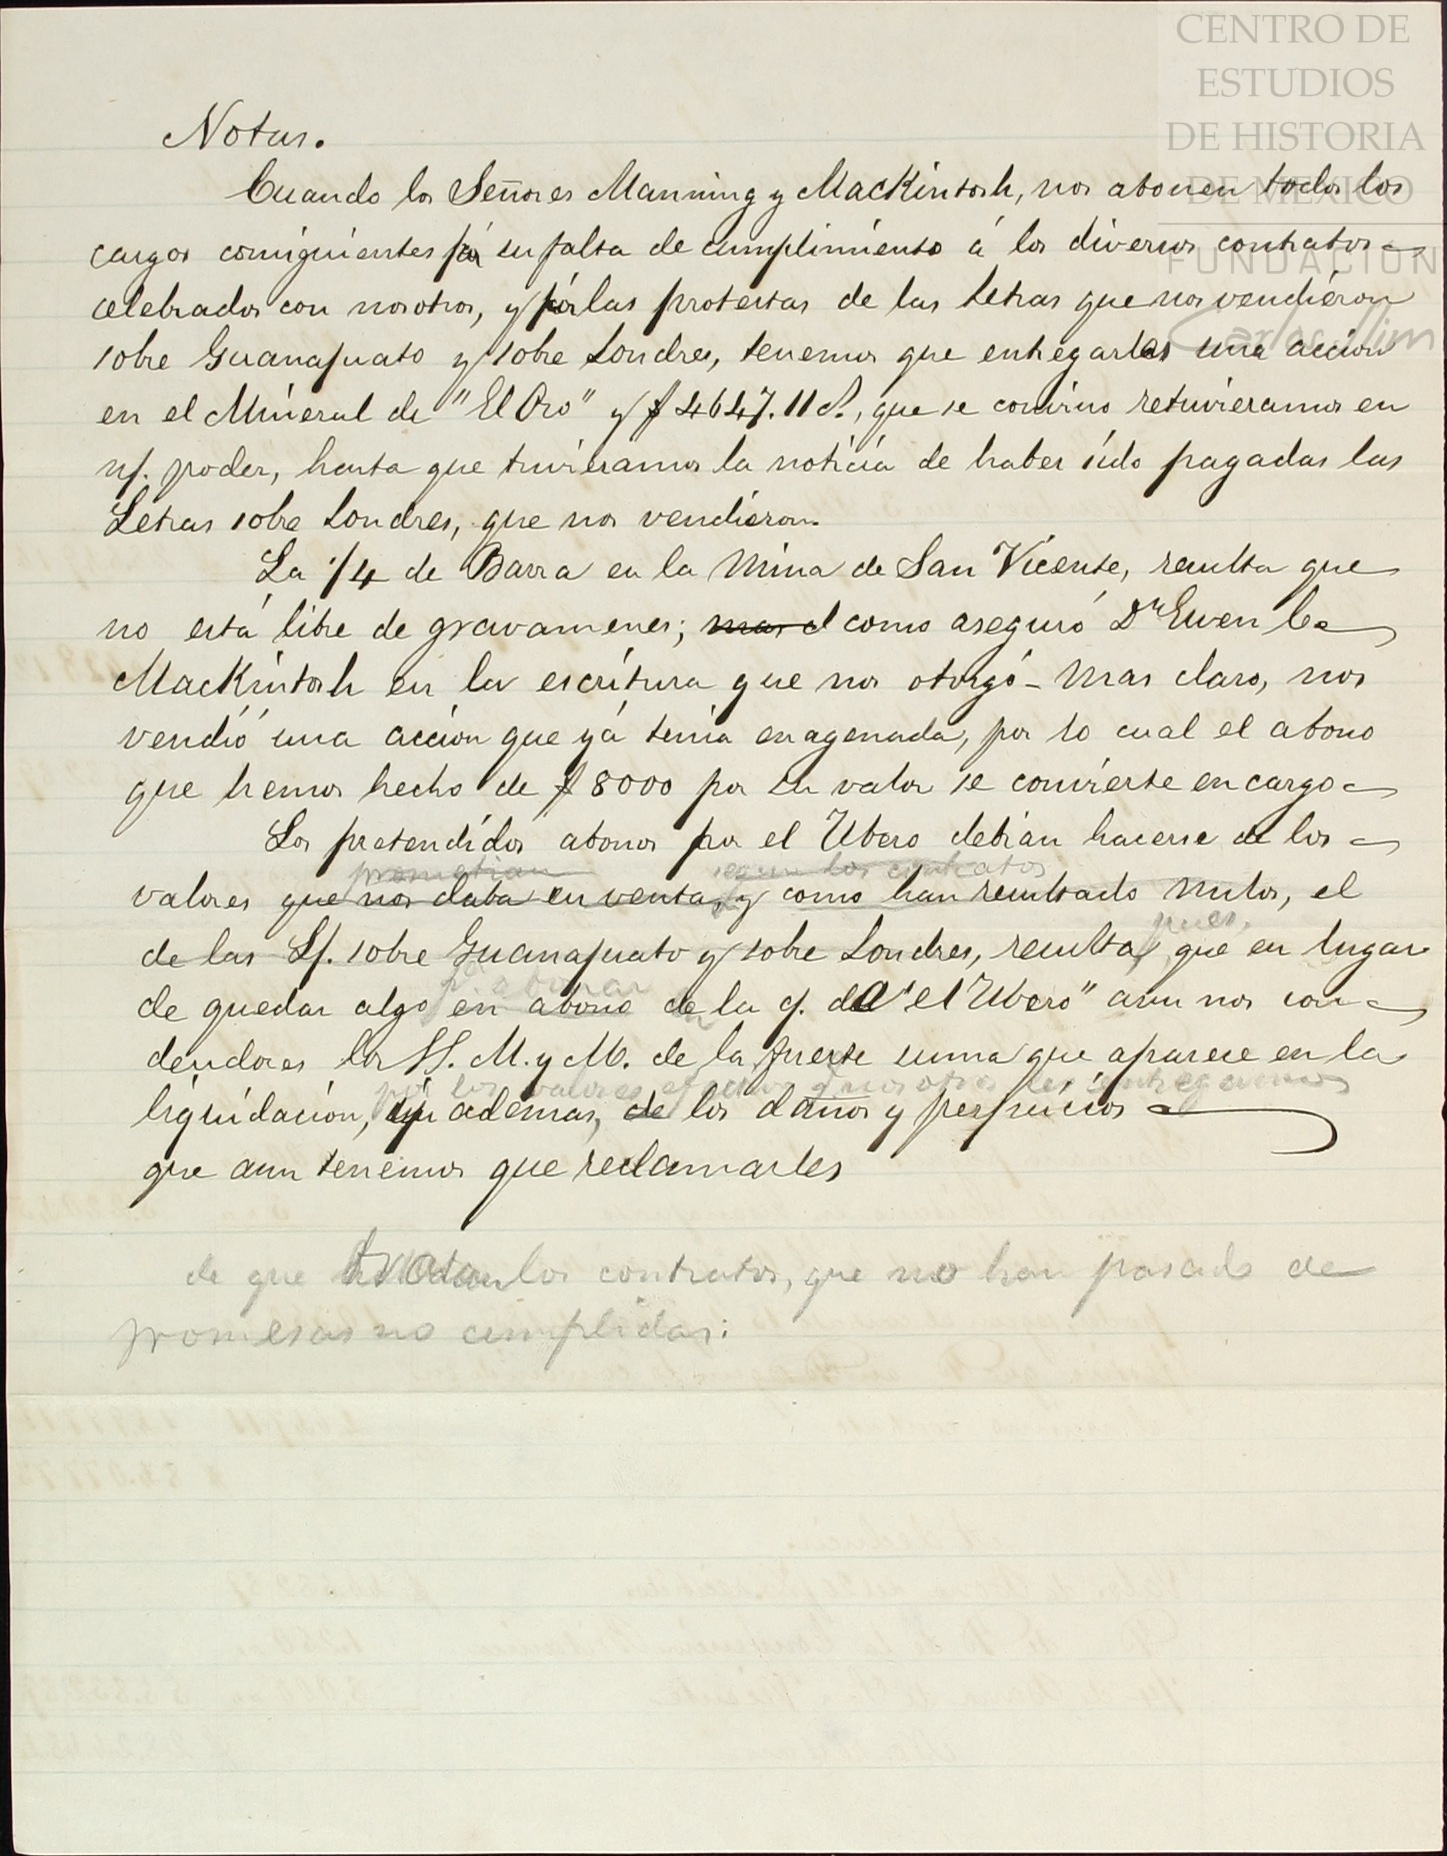 CENTRO DE
ESTUDIOS
DE HISTORIA
DE MEXICO
FUNDACION
Carlos Slim
Notas.
Cuando los Señores Manning y MacKintosh, nos abonen todos los
cargos consiguientes por su falta de cumplimiento á los diversos contratos
celebrados con nosotros, y por las protestas de las Letras que nos vendieron
sobre Guanajuato y sobre Londres, tenemos que entregarles una accion
en el Mineral de "El Oro" y $ 4647.11 c., que se convino retuvieramos en
n/. poder, hasta que tuvieramos la noticia de haber sido pagadas las
Letras sobre Londres, que nos vendieron.
La 1/4 de Barra en la Mina de San Vicente, resulta que
no está libre de gravamenes; como aseguró Dn Ewen C.
MacKintosh en la escritura que nos otorgó - Mas claro, nos
vendió una accion que yá tenia enagenada, por lo cual el abono
que hemos hecho de $ 8000 por su valor se convierte en cargo
Los pretendidos abonos por el Ubero debian hacerse de los
prometian segun los contratos
valores que nos daba en venta, y como han resultado nulos, el
pues,
de las L/. sobre Guanajuato y sobre Londres, resulta que en lugar
p. abonar
de quedar algo en abono de la c/. de "el Ubero" aun nos son
deudores los SS. M. y M. de la fuerte suma que aparece en la
por los valores efectivos q. nosotros les entregamos
liquidacion, ademas, de los daños y perjuicios
que aun tenemos que reclamarles
de que tratan los contratos, que no han pasado de
promesas no cumplidas: